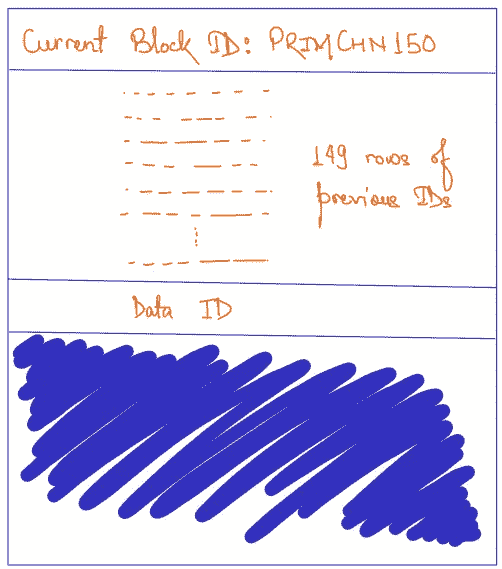 Current Block ID: PRIMCHN150
149 rows of
previous IDs
Data ID